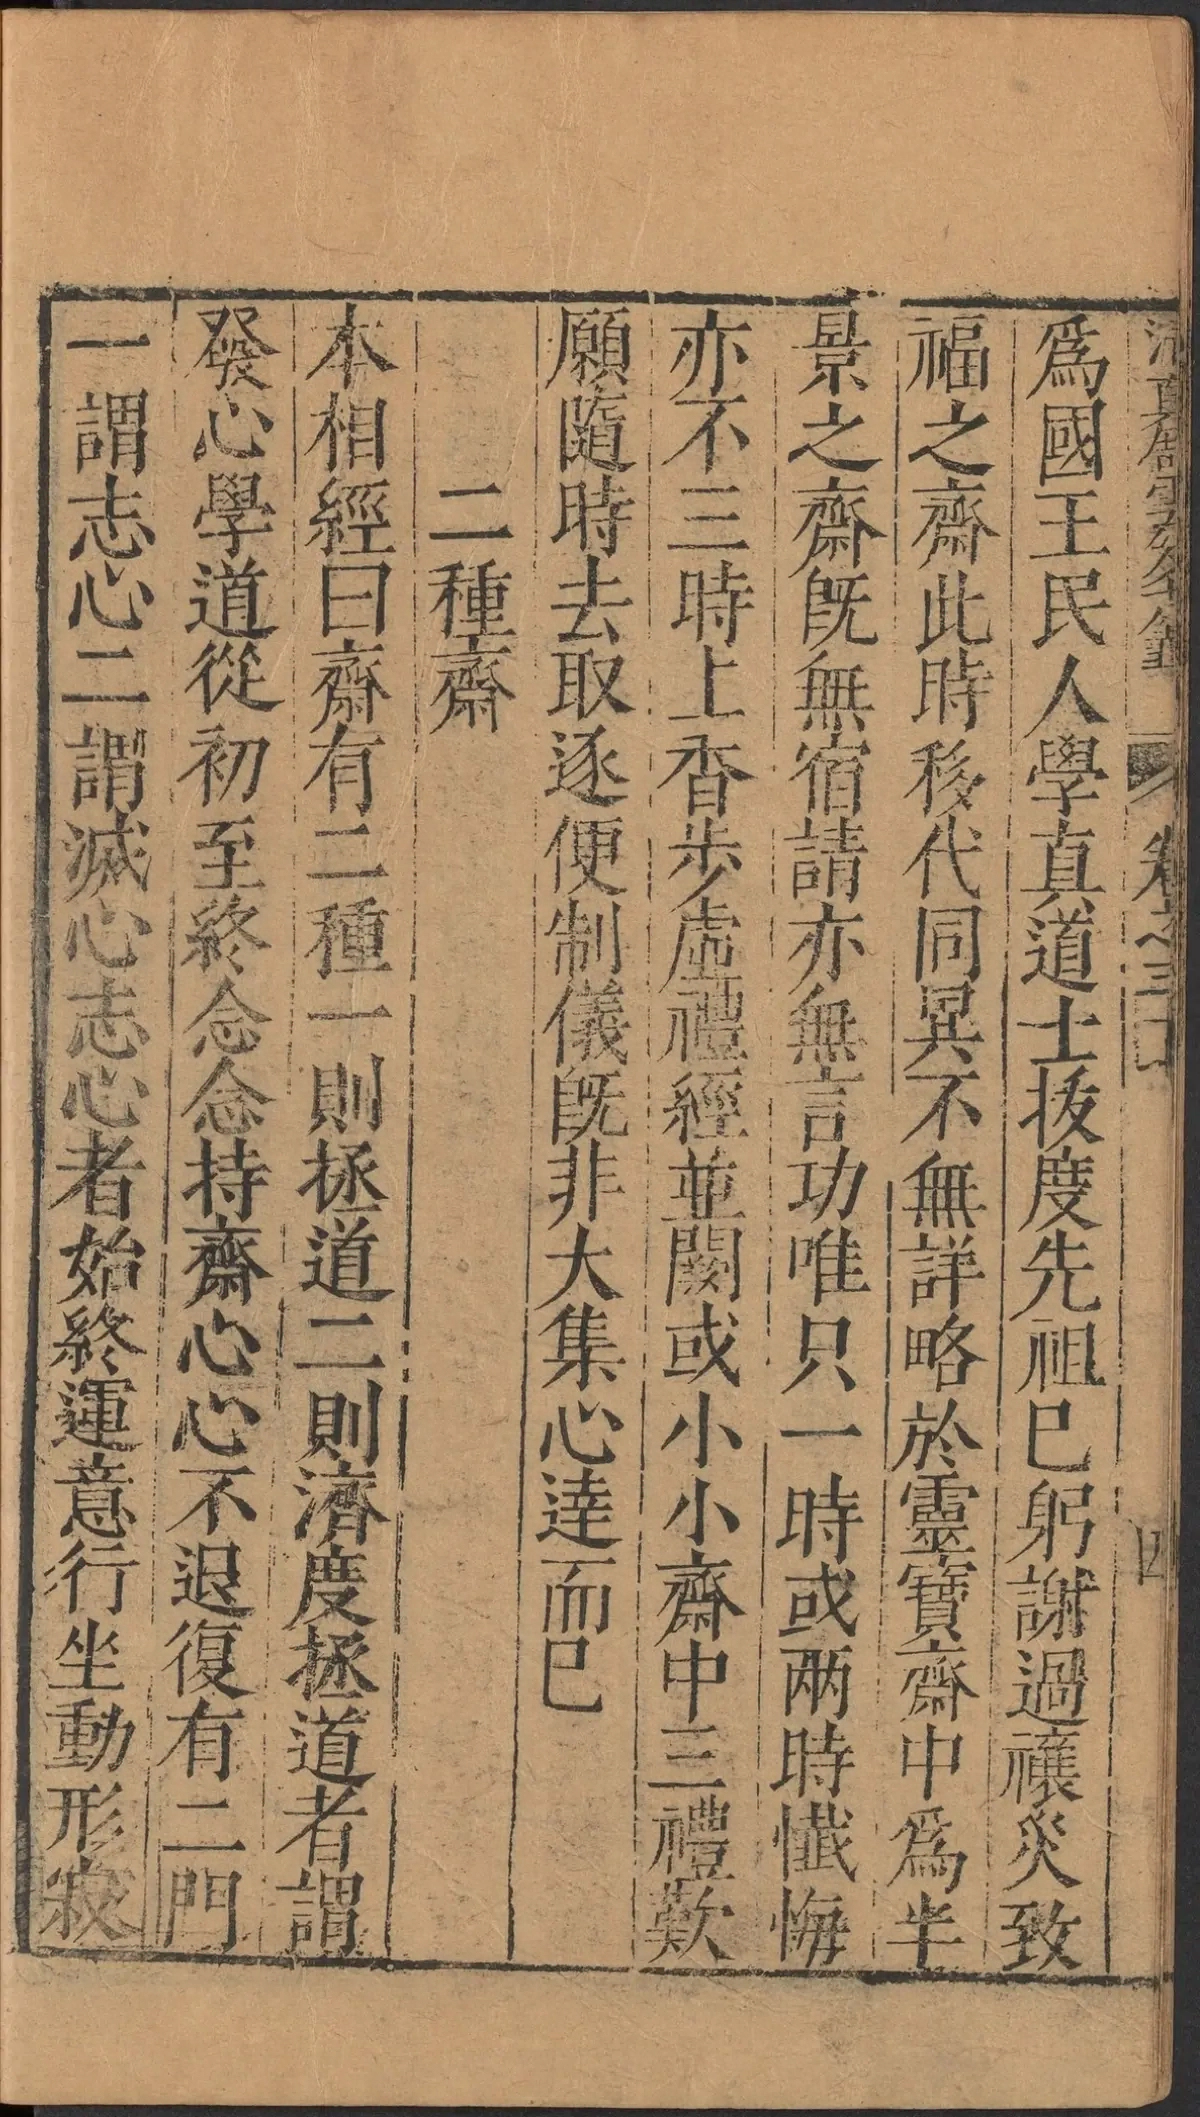 清真館雲笈七籤 卷之三十 四
爲國王民人學真道士拔度先祖巳躬謝過禳災致
福之齋此時移代同異不無詳略於靈寶齋中爲半
景之齋旣無宿請亦無言功唯只一時或兩時懺悔
亦不三時上香步虛禮經並闕或小小齋中三禮歎
願隨時去取逐便制儀旣非大集心達而巳
二種齋
本相經曰齋有二種一則拯道二則濟度拯道者謂
發心學道從初至終念念持齋心心不退復有二門
一謂志心二謂滅心志心者始終運意行坐動形寂